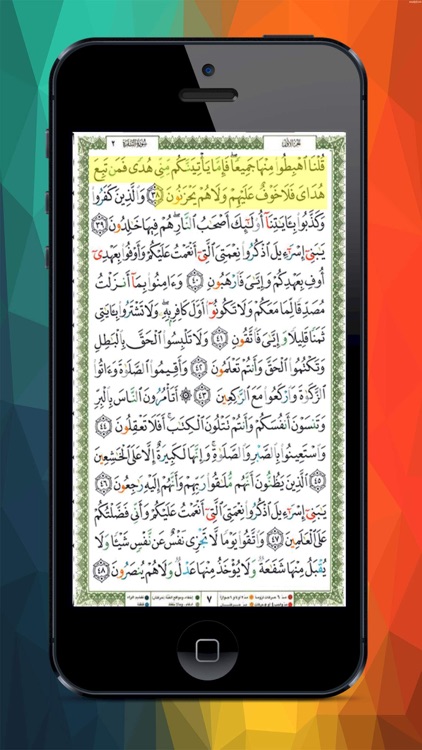 سورة البقرة ٢
الجزء الأول
قُلْنَا ٱهْبِطُوا۟ مِنْهَا جَمِيعًا ۖ فَإِمَّا يَأْتِيَنَّكُم مِّنِّى هُدًى فَمَن تَبِعَ
هُدَاىَ فَلَا خَوْفٌ عَلَيْهِمْ وَلَا هُمْ يَحْزَنُونَ ٣٨ وَٱلَّذِينَ كَفَرُوا۟
وَكَذَّبُوا۟ بِـَٔايَـٰتِنَآ أُو۟لَـٰٓئِكَ أَصْحَـٰبُ ٱلنَّارِ ۖ هُمْ فِيهَا خَـٰلِدُونَ ٣٩
يَـٰبَنِىٓ إِسْرَٰٓءِيلَ ٱذْكُرُوا۟ نِعْمَتِىَ ٱلَّتِىٓ أَنْعَمْتُ عَلَيْكُمْ وَأَوْفُوا۟ بِعَهْدِىٓ
أُوفِ بِعَهْدِكُمْ وَإِيَّـٰىَ فَٱرْهَبُونِ ٤٠ وَءَامِنُوا۟ بِمَآ أَنزَلْتُ
مُصَدِّقًا لِّمَا مَعَكُمْ وَلَا تَكُونُوٓا۟ أَوَّلَ كَافِرٍۭ بِهِۦ ۖ وَلَا تَشْتَرُوا۟ بِـَٔايَـٰتِى
ثَمَنًا قَلِيلًا وَإِيَّـٰىَ فَٱتَّقُونِ ٤١ وَلَا تَلْبِسُوا۟ ٱلْحَقَّ بِٱلْبَـٰطِلِ
وَتَكْتُمُوا۟ ٱلْحَقَّ وَأَنتُمْ تَعْلَمُونَ ٤٢ وَأَقِيمُوا۟ ٱلصَّلَوٰةَ وَءَاتُوا۟
ٱلزَّكَوٰةَ وَٱرْكَعُوا۟ مَعَ ٱلرَّٰكِعِينَ ٤٣ ۞ أَتَأْمُرُونَ ٱلنَّاسَ بِٱلْبِرِّ
وَتَنسَوْنَ أَنفُسَكُمْ وَأَنتُمْ تَتْلُونَ ٱلْكِتَـٰبَ ۚ أَفَلَا تَعْقِلُونَ ٤٤
وَٱسْتَعِينُوا۟ بِٱلصَّبْرِ وَٱلصَّلَوٰةِ ۚ وَإِنَّهَا لَكَبِيرَةٌ إِلَّا عَلَى ٱلْخَـٰشِعِينَ
٤٥ ٱلَّذِينَ يَظُنُّونَ أَنَّهُم مُّلَـٰقُوا۟ رَبِّهِمْ وَأَنَّهُمْ إِلَيْهِ رَٰجِعُونَ ٤٦
يَـٰبَنِىٓ إِسْرَٰٓءِيلَ ٱذْكُرُوا۟ نِعْمَتِىَ ٱلَّتِىٓ أَنْعَمْتُ عَلَيْكُمْ وَأَنِّى فَضَّلْتُكُمْ
عَلَى ٱلْعَـٰلَمِينَ ٤٧ وَٱتَّقُوا۟ يَوْمًا لَّا تَجْزِى نَفْسٌ عَن نَّفْسٍ شَيْـًٔا وَلَا
يُقْبَلُ مِنْهَا شَفَـٰعَةٌ وَلَا يُؤْخَذُ مِنْهَا عَدْلٌ وَلَا هُمْ يُنصَرُونَ ٤٨
٧